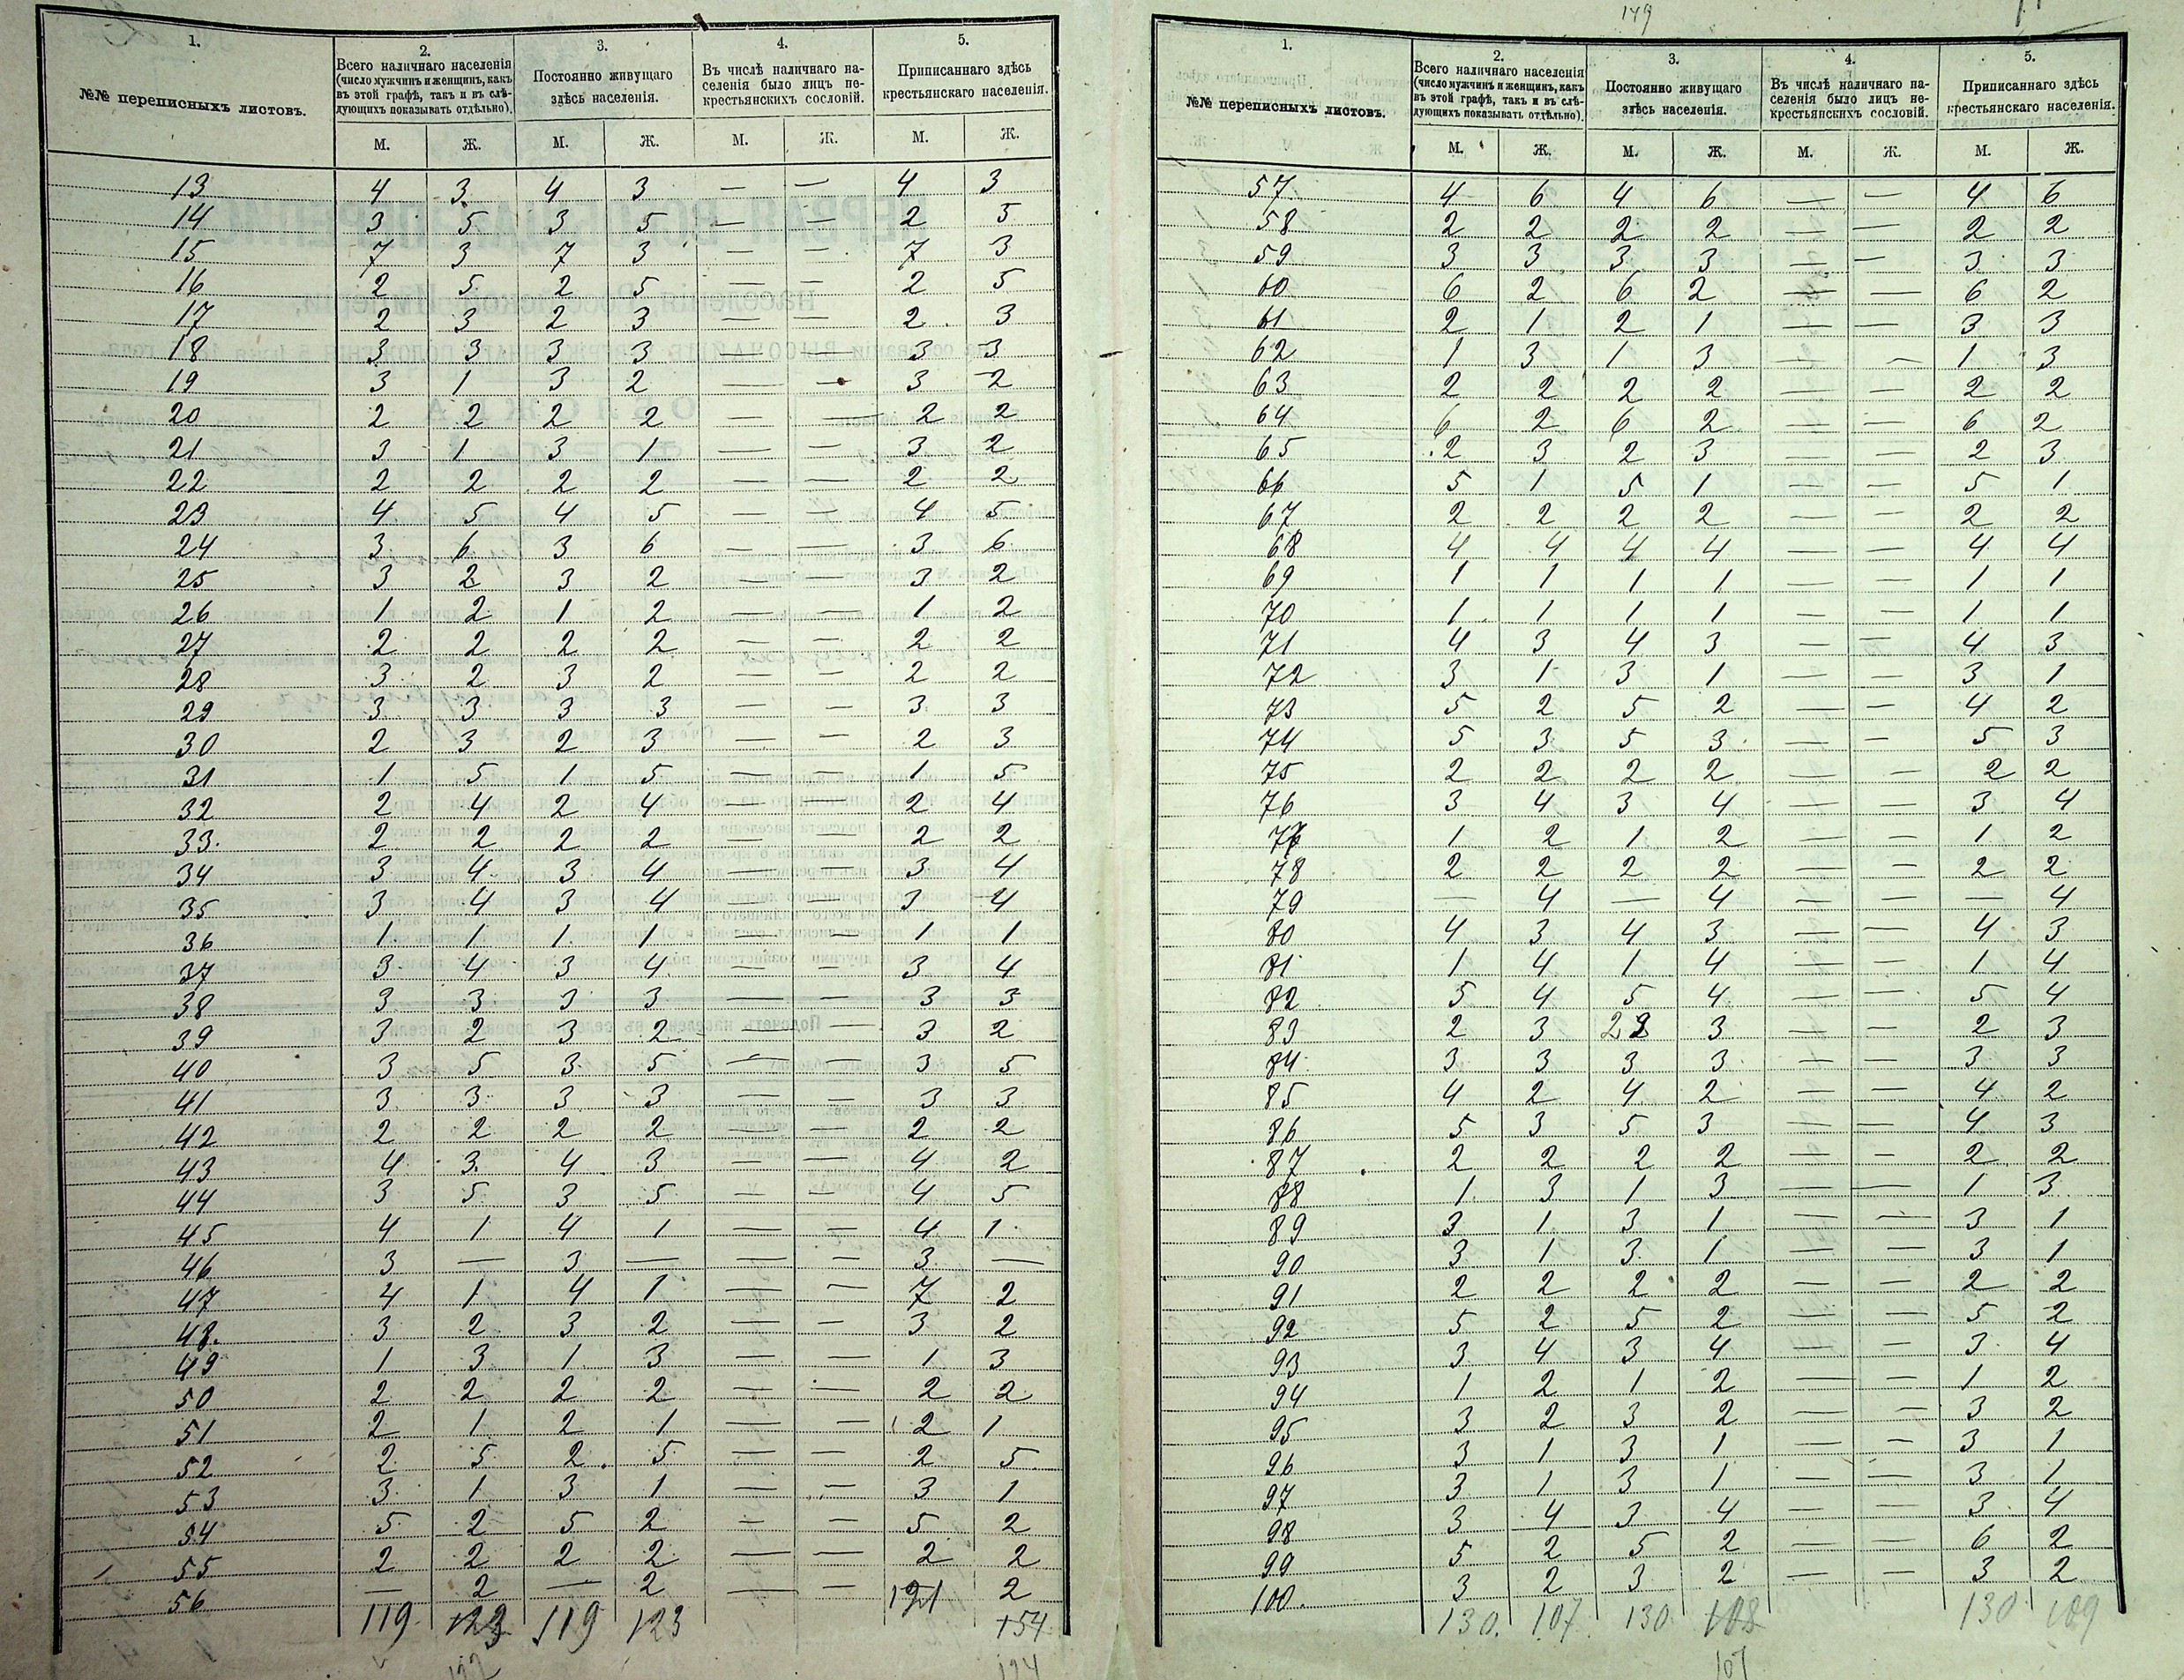 1. 2. 3. 4. 5.
№№ переписныхъ листовъ. Всего наличнаго населенія (число мужчинъ и женщинъ, какъ въ этой графѣ, такъ и въ слѣдующихъ показывать отдѣльно). Постоянно живущаго здѣсь населенія. Въ числѣ наличнаго населенія было лицъ некрестьянскихъ сословій. Приписаннаго здѣсь крестьянскаго населенія.
М. Ж. М. Ж. М. Ж. М. Ж.
13 4 3 4 3 — — 4 3
14 3 5 3 5 — — 2 5
15 7 3 7 3 — — 7 3
16 2 5 2 5 — — 2 5
17 2 3 2 3 — — 2 3
18 3 3 3 3 — — 3 3
19 3 1 3 2 — — 3 2
20 2 2 2 2 — — 2 2
21 3 1 3 1 — — 3 2
22 2 2 2 2 — — 2 2
23 4 5 4 5 — — 4 5
24 3 6 3 6 — — 3 6
25 3 2 3 2 — — 3 2
26 1 2 1 2 — — 1 2
27 2 2 2 2 — — 2 2
28 3 2 3 2 — — 2 2
29 3 3 3 3 — — 3 3
30 2 3 2 3 — — 2 3
31 1 5 1 5 — — 1 5
32 2 4 2 4 — — 2 4
33. 2 2 2 2 — — 2 2
34 3 4 3 4 — — 3 4
35 3 4 3 4 — — 3 4
36 1 1 1 1 — — 1 1
37 3 4 3 4 — — 3 4
38 3 3 3 3 — — 3 3
39 3 2 3 2 — — 3 2
40 3 5 3 5 — — 3 5
41 3 3 3 3 — — 3 3
42 2 2 2 2 — — 2 2
43 4 3 4 3 — — 4 2
44 3 5 3 5 — — 4 5
45 4 1 4 1 — — 4 1
46 3 — 3 — — — 3 —
47 4 1 4 1 — — 7 2
48. 3 2 3 2 — — 3 2
49 1 3 1 3 — — 1 3
50 2 2 2 2 — — 2 2
51 2 1 2 1 — — 2 1
52 2 5 2 5 — — 2 5
53 3 1 3 1 — — 3 1
54 5 2 5 2 — — 5 2
55 2 2 2 2 — — 2 2
56 — 2 — 2 — — 2
119 123 119 123 121 154
122 124
149
1. 2. 3. 4. 5.
№№ переписныхъ листовъ. Всего наличнаго населенія (число мужчинъ и женщинъ, какъ въ этой графѣ, такъ и въ слѣдующихъ показывать отдѣльно). Постоянно живущаго здѣсь населенія. Въ числѣ наличнаго населенія было лицъ некрестьянскихъ сословій. Приписаннаго здѣсь крестьянскаго населенія.
М. Ж. М. Ж. М. Ж. М. Ж.
57 4 6 4 6 — — 4 6
58 2 2 2 2 — — 2 2
59 3 3 3 3 — — 3 3
60 6 2 6 2 — — 6 2
61 2 1 2 1 — — 3 3
62 1 3 1 3 — — 1 3
63 2 2 2 2 — — 2 2
64 6 2 6 2 — — 6 2
65 2 3 2 3 — — 2 3
66 5 1 5 1 — — 5 1
67 2 2 2 2 — — 2 2
68 4 4 4 4 — — 4 4
69 1 1 1 1 — — 1 1
70 1 1 1 1 — — 1 1
71 4 3 4 3 — — 4 3
72 3 1 3 1 — — 3 1
73 5 2 5 2 — — 4 2
74 5 3 5 3 — — 5 3
75 2 2 2 2 — — 2 2
76 3 4 3 4 — — 3 4
77 1 2 1 2 — — 1 2
78 2 2 2 2 — — 2 2
79 — 4 — 4 — — — 4
80 4 3 4 3 — — 4 3
81 1 4 1 4 — — 1 4
82 5 4 5 4 — — 5 4
83 2 3 2 3 — — 2 3
84 3 3 3 3 — — 3 3
85 4 2 4 2 — — 4 2
86 5 3 5 3 — — 4 3
87 2 2 2 2 — — 2 2
88 1 3 1 3 — — 1 3
89 3 1 3 1 — — 3 1
90 3 1 3 1 — — 3 1
91 2 2 2 2 — — 2 2
92 5 2 5 2 — — 5 2
93 3 4 3 4 — — 3 4
94 1 2 1 2 — — 1 2
95 3 2 3 2 — — 3 2
96 3 1 3 1 — — 3 1
97 3 1 3 1 — — 3 1
98 3 4 3 4 — — 3 4
99 5 2 5 2 — — 6 2
100. 3 2 3 2 — — 3 2
130. 107 130 108 130 109
107